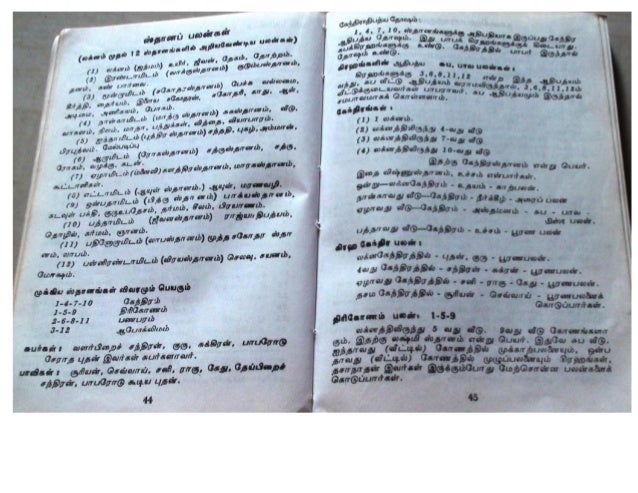 ஸ்தானப் பலன்கள்
(லக்னம் முதல் 12 ஸ்தானங்களில் அறியவேண்டிய பலன்கள்)
(1) லக்னம் (ஜந்மம்) உயிர், ஜீவன், தேகம், தோற்றம்.
(2) இரண்டாமிடம் (வாக்குஸ்தானம்) குடும்பஸ்தானம்,
தனம், கண் பார்வை.
(3) மூன்றுமிடம் (சகோதரஸ்தானம்) பேச்சு வல்லமை,
கீர்த்தி, தைர்யம், இளைய சகோதரன், சகோதரி, காது, ஆள்,
அடிமை, அணிகலம், போகம்.
(4) நான்காமிடம் (மாத்ரு ஸ்தானம்) சுகஸ்தானம், வீடு,
வாகனம், நிலம், மாதா, பந்துக்கள், வித்தை, வியாபாரம்.
(5) ஐந்தாமிடம் (புத்திர ஸ்தானம்) சந்ததி, புகழ், அம்மான்,
பிரபுத்வம், மேல்படிப்பு
(6) ஆறுமிடம் (ரோகஸ்தானம்) சத்ருஸ்தானம், சத்ரு,
ரோகம், வழக்கு, கடன்.
(7) ஏழாமிடம் (மனைவி) களத்திரஸ்தானம், மாரகஸ்தானம்,
கூட்டாளிகள்.
(8) எட்டாமிடம் (ஆயுள் ஸ்தானம்) ஆயுள், மரணவழி.
(9) ஒன்பதாமிடம் (பித்ரு ஸ்தானம்) பாக்யஸ்தானம்,
கடவுள் பக்தி, குருஉபதேசம், தர்மம், சீலம், பிரயாணம்.
(10) பத்தாமிடம் (ஜீவனஸ்தானம்) ராஜ்யாதிபத்யம்,
தொழில், கர்மம், ஞானம்.
(11) பதினோறுமிடம் (லாபஸ்தானம்) மூத்த சகோதர ஸ்தா
னம், லாபம்.
(12) பன்னிரண்டாமிடம் (விரயஸ்தானம்) செலவு, சயனம்,
மோக்ஷம்.
முக்கிய ஸ்தானங்கள் விவரமும் பெயரும்
1-4-7-10 கேந்திரம்
1-5-9 திரிகோணம்
2-6-8-11 பணபரம்
3-12 ஆபோக்லிமம்
சுபர்கள் : வளர்பிறைச் சந்திரன், குரு, சுக்கிரன், பாபரோடு
சேராத புதன் இவர்கள் சுபர்களாவர்.
பாவிகள் : சூரியன், செவ்வாய், சனி, ராகு, கேது, தேய்பிறைச்
சந்திரன், பாபரோடு கூடிய புதன்.
44
கேந்திராதிபத்ய தோஷம்:
1, 4, 7, 10, ஸ்தானங்களுக்கு அதிபதியாக இருப்பது கேந்திர
ஆதிபத்ய தோஷம். இது பாபக் கிரஹங்களுக்குக் கிடையாது.
சுபக்கிரஹங்களுக்கு உண்டு. கேந்திரத்தில் பாபர் இருந்தால்
தோஷம் உண்டு.
கிரஹங்களின் ஆதிபத்ய சுப, பாவ பலன்கள் :
கிரஹங்களுக்கு 3,6,8,11,12 என்ற இந்த ஆதிபத்யம்
வந்து, சுப வீட்டு ஆதிபத்யம் வராமலிருந்தால், 2,6,8,11,12ம்
வீட்டுக்குடையவர்கள் பாபராவர். சுப ஆதிபத்யமும் இருந்தால்
சமபாவமாகக் கொள்ளலாம்.
கேந்திரங்கள் :
(1) 1 லக்னம்.
(2) லக்னத்திலிருந்து 4-வது வீடு
(3) லக்னத்திலிருந்து 7-வது வீடு
(4) லக்னத்திலிருந்து 10-வது வீடு
இதற்கு கேந்திரஸ்தானம் என்று பெயர்.
இதை விஷ்ணுஸ்தானம், உச்சம் என்பார்கள்.
ஒன்று—லக்னகேந்திரம் - உதயம் - காற்பலன்.
நான்காவது வீடு—கேந்திரம் - நீர்க்கீழ் - அரைப் பலன்
ஏழாவது வீடு—கேந்திரம் - அஸ்தமனம் - சுப - பாவ -
மிஸ்ர பலன்.
பத்தாவது வீடு—கேந்திரம் - உச்சம் - பூரண பலன்
கிரஹ கேந்திர பலன் :
லக்னகேந்திரத்தில் - புதன், குரு - பூரணபலன்.
4வது கேந்திரத்தில் - சந்திரன் - சுக்ரன் - பூரணபலன்.
ஏழாவது கேந்திரத்தில் - சனி - ராகு - கேது - பூரணபலன்.
தசம கேந்திரத்தில் - சூரியன் - செவ்வாய் - பூரணபலனைக்
கொடுப்பார்கள்.
திரிகோணம் பலன்: 1-5-9
லக்னத்திலிருந்து 5 வது வீடு. 9வது வீடு கோணங்களா
கும். இதற்கு லக்ஷ்மி ஸ்தானம் என்று பெயர். இதுவே சுப வீடு.
ஐந்தாவது (வீட்டில்) கோணத்தில் முக்காற்பலனையும், ஒன்ப
தாவது (வீட்டில்) கோணத்தில் முழுப்பலனையும் கிரஹங்கள்,
தசாநாதன் இவர்கள் இருக்கும்போது மேற்சொன்ன பலன்களைக்
கொடுப்பார்கள்.
45